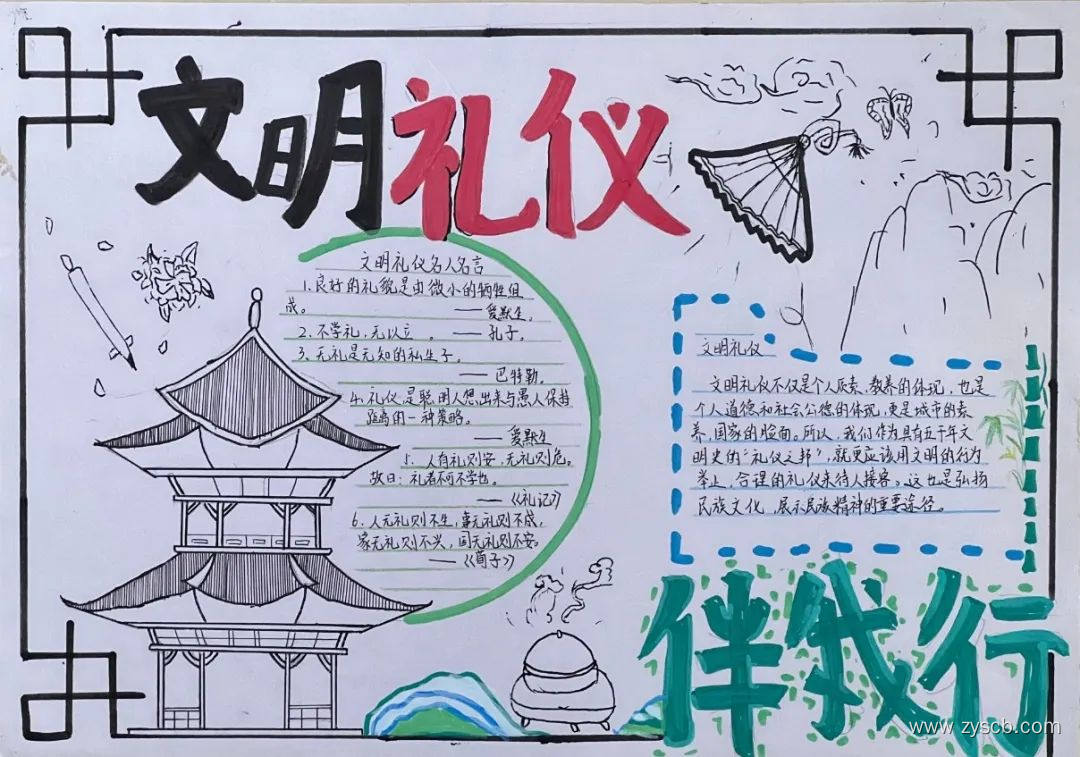 文明礼仪
文明礼仪名人名言
1、良好的礼貌是由微小的牺牲组
成。 ——爱默生。
2、不学礼，无以立。 ——孔子。
3、无礼是无知的私生子。
——巴特勒。
4、礼仪是聪明人想出来与愚人保持
距离的一种策略。
——爱默生
5、人有礼则安，无礼则危。
故曰：礼者不可不学也。
——《礼记》
6、人无礼则不生，事无礼则不成，
家无礼则不兴，国无礼则不安。
——《荀子》
文明礼仪
文明礼仪不仅是个人质素、教养的体现，也是
个人道德和社会公德的体现，更是城市的素
养，国家的脸面。所以，我们作为具有五千年文
明史的“礼仪之邦”，就更应该用文明的行为
举止，合理的礼仪来待人接客。这也是弘扬
民族文化，展示民族精神的重要途径。
伴我行
www.zyscb.com